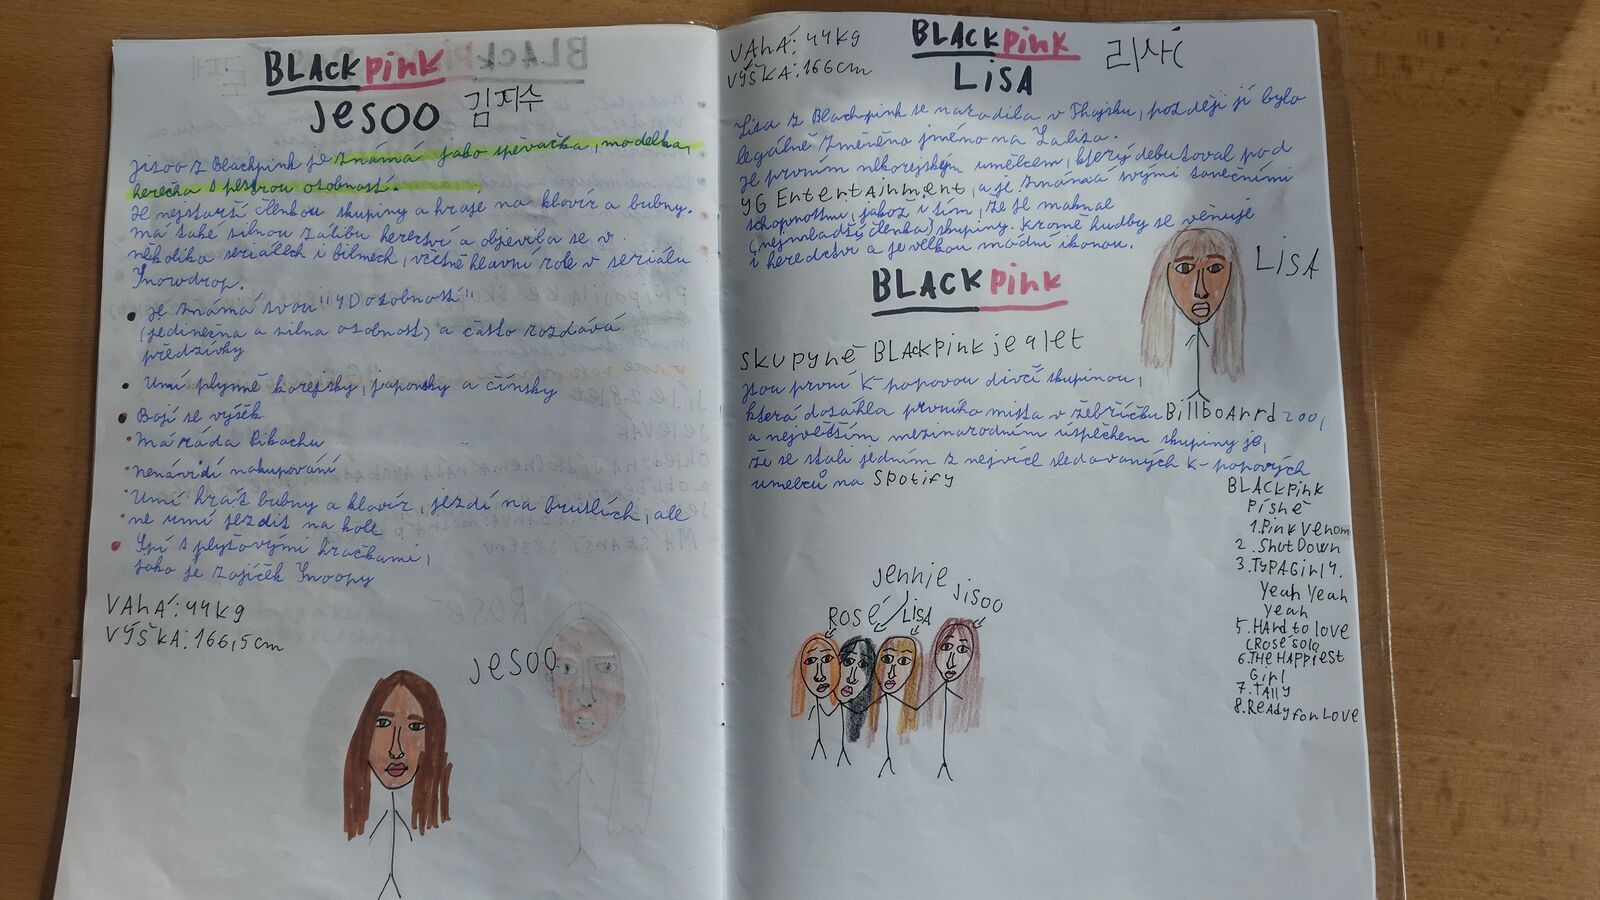 BLACKpink
Jesoo 김지수
Jisoo z Blackpink je známá jako spěvačka, modelka,
herečka s pestrou osobností.
Je nejstarší členkou skupiny a hraje na klavír a bubny.
má také silnou zálibu herectví a objevila se v
několika seriálech i bilmech, včetně hlavní role v seriálu
Snowdrop.
• Je známá svou "4D osobností"
(jedinečna a silna osobnost) a často rozdává
předzívky
• Umí plynně korejsky, japonsky a čínsky
• Bojí se výšek
• má ráda Pikachu
• nenávidí nakupování
• Umí hrát bubny a klavír, jezdí na bruslích, ale
ne umí jezdit na kole
• Spí s plyšovými hračkami,
jako je zajíček Snoopy
VAhÁ: 44kg
VÝŠKA: 166,5cm
Jesoo
VAhÁ: 44kg
VÝŠKA: 166cm
BLACKpink
LiSA
리사
Lisa z Blackpink se narodila v Thajsku, později jí bylo
legálně změněno jméno na Lalisa.
Je prvním nekorejským umělcem, který debutoval pod
YG EntertAinment, a je známá svými tanečními
schopnostmi, jakož i tím, že je maknae
(nejmladší členka) skupiny. Kromě hudby se věnuje
i heredctví a je velkou módní ikonou.
LiSA
BLACKpink
Skupyně BLAckpink je 9 let
Jsou první K-popovou dívčí skupinou,
která dosáhla prvního místa v žebříčku BillboArrd 200,
a největším mezinarodním úspěchem skupiny je,
že se stali jedním z nejvíce sledovaných K-popových
umělců na Spotify
BLACKpink
Písně
1. Pink Venom
2. Shut Down
3. TypAGirl 4.
Yeah Yeah
Yeah
5. HArd to love
(Rosé solo
6. THE HAppiest
Girl
7. TAlly
8. ReAdy for Love
Jennie
Jisoo
ROSÉ
LiSA